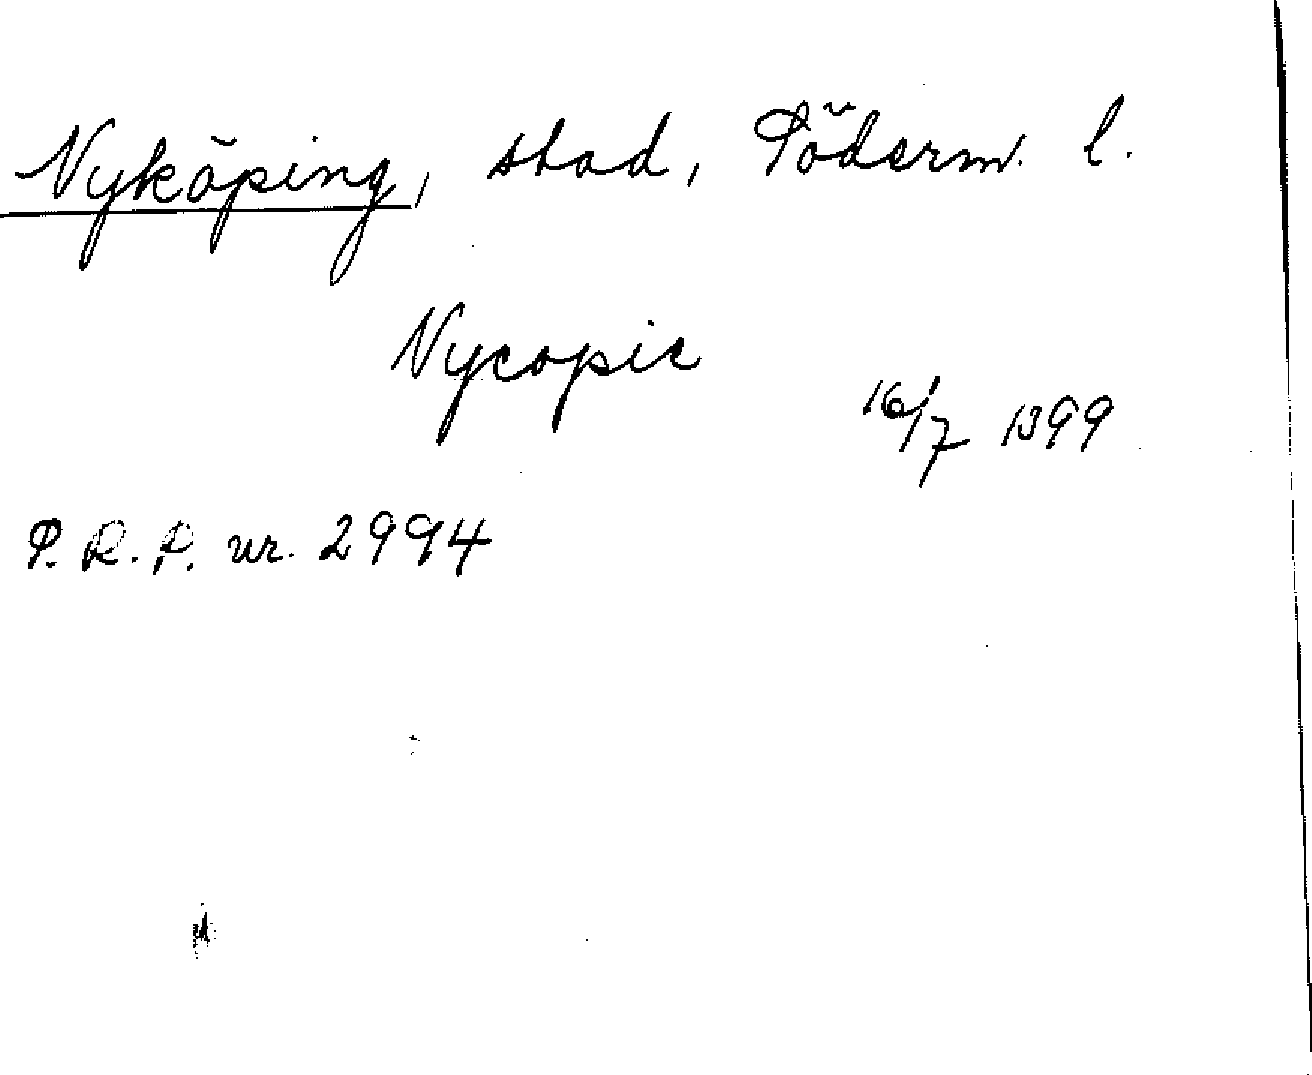 Nyköping, stad, Söderm. l.
Nycopic
16/7 1399
S. R. P. nr. 2994